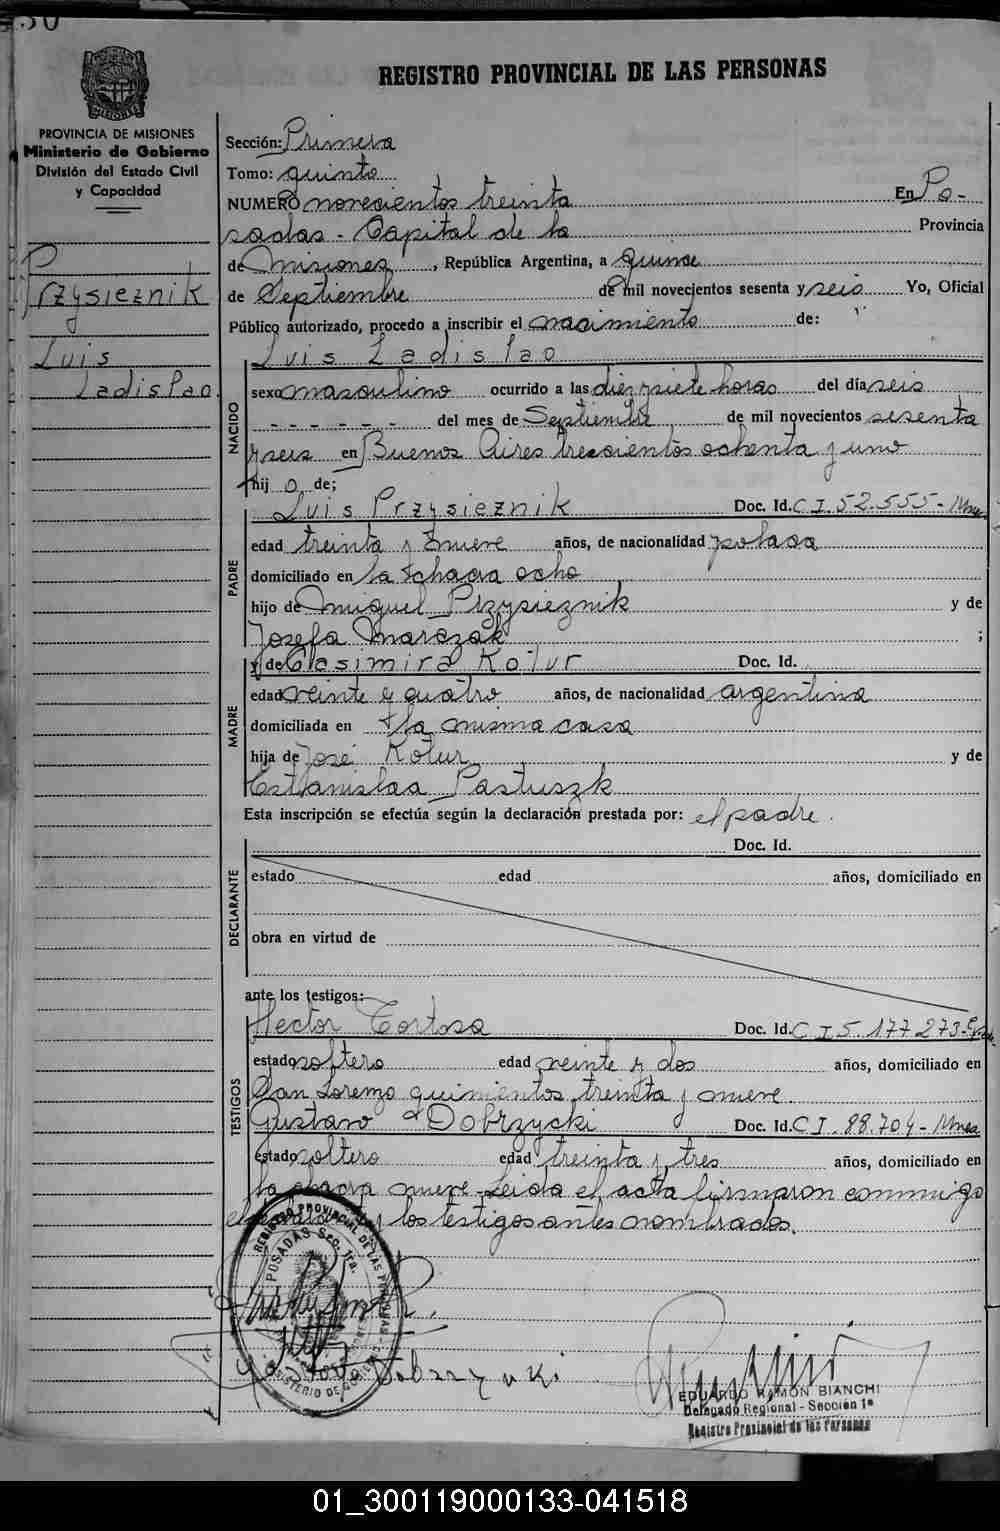 30
REGISTRO PROVINCIAL DE LAS PERSONAS
PROVINCIA DE MISIONES
Ministerio de Gobierno
División del Estado Civil
y Capacidad
Przysieznik
Luis
Ladislao
Sección: Primera
Tomo: quinto
NUMERO novecientos treinta En Po-
sadas - Capital de la Provincia
de Misiones, República Argentina, a quince
de Septiembre de mil novecientos sesenta y seis Yo, Oficial
Público autorizado, procedo a inscribir el nacimiento de:
NACIDO
Luis Ladislao
sexo masculino ocurrido a las diez y siete horas del día seis
- - - - - - del mes de Septiembre de mil novecientos sesenta
y seis en Buenos Aires trescientos ochenta y uno
hij o de:
PADRE
Luis Przysieznik Doc. Id. C I. 52.555 - Mnes
edad treinta y nueve años, de nacionalidad polaca
domiciliado en la chacra ocho
hijo de Miguel Przysieznik y de
Josefa Marczak ;
y de Casimira Kotur Doc. Id.
MADRE
edad veinte y cuatro años, de nacionalidad argentina
domiciliada en la misma casa
hija de José Kotur y de
Estanislaa Pastuszk
Esta inscripción se efectúa según la declaración prestada por: el padre.
DECLARANTE
Doc. Id.
estado edad años, domiciliado en
obra en virtud de
ante los testigos:
TESTIGOS
Hector Tortosa Doc. Id. C I 5.177.273
estado soltero edad veinte y dos años, domiciliado en
San Lorenzo quinientos treinta y nueve.
Gustavo Dobrzycki Doc. Id. C I. 88.704 - Mnes
estado soltero edad treinta y tres años, domiciliado en
la chacra nueve - Leida el acta firmaron conmigo
y los testigos antes nombrados.
REGISTRO PROVINCIAL DE LAS PERSONAS
POSADAS Sec. 1ra.
MINISTERIO DE GOBIERNO
Dobrzycki
EDUARDO RAMON BIANCHI
Delegado Regional - Sección 1ª
Registro Provincial de las Personas
01_300119000133-041518